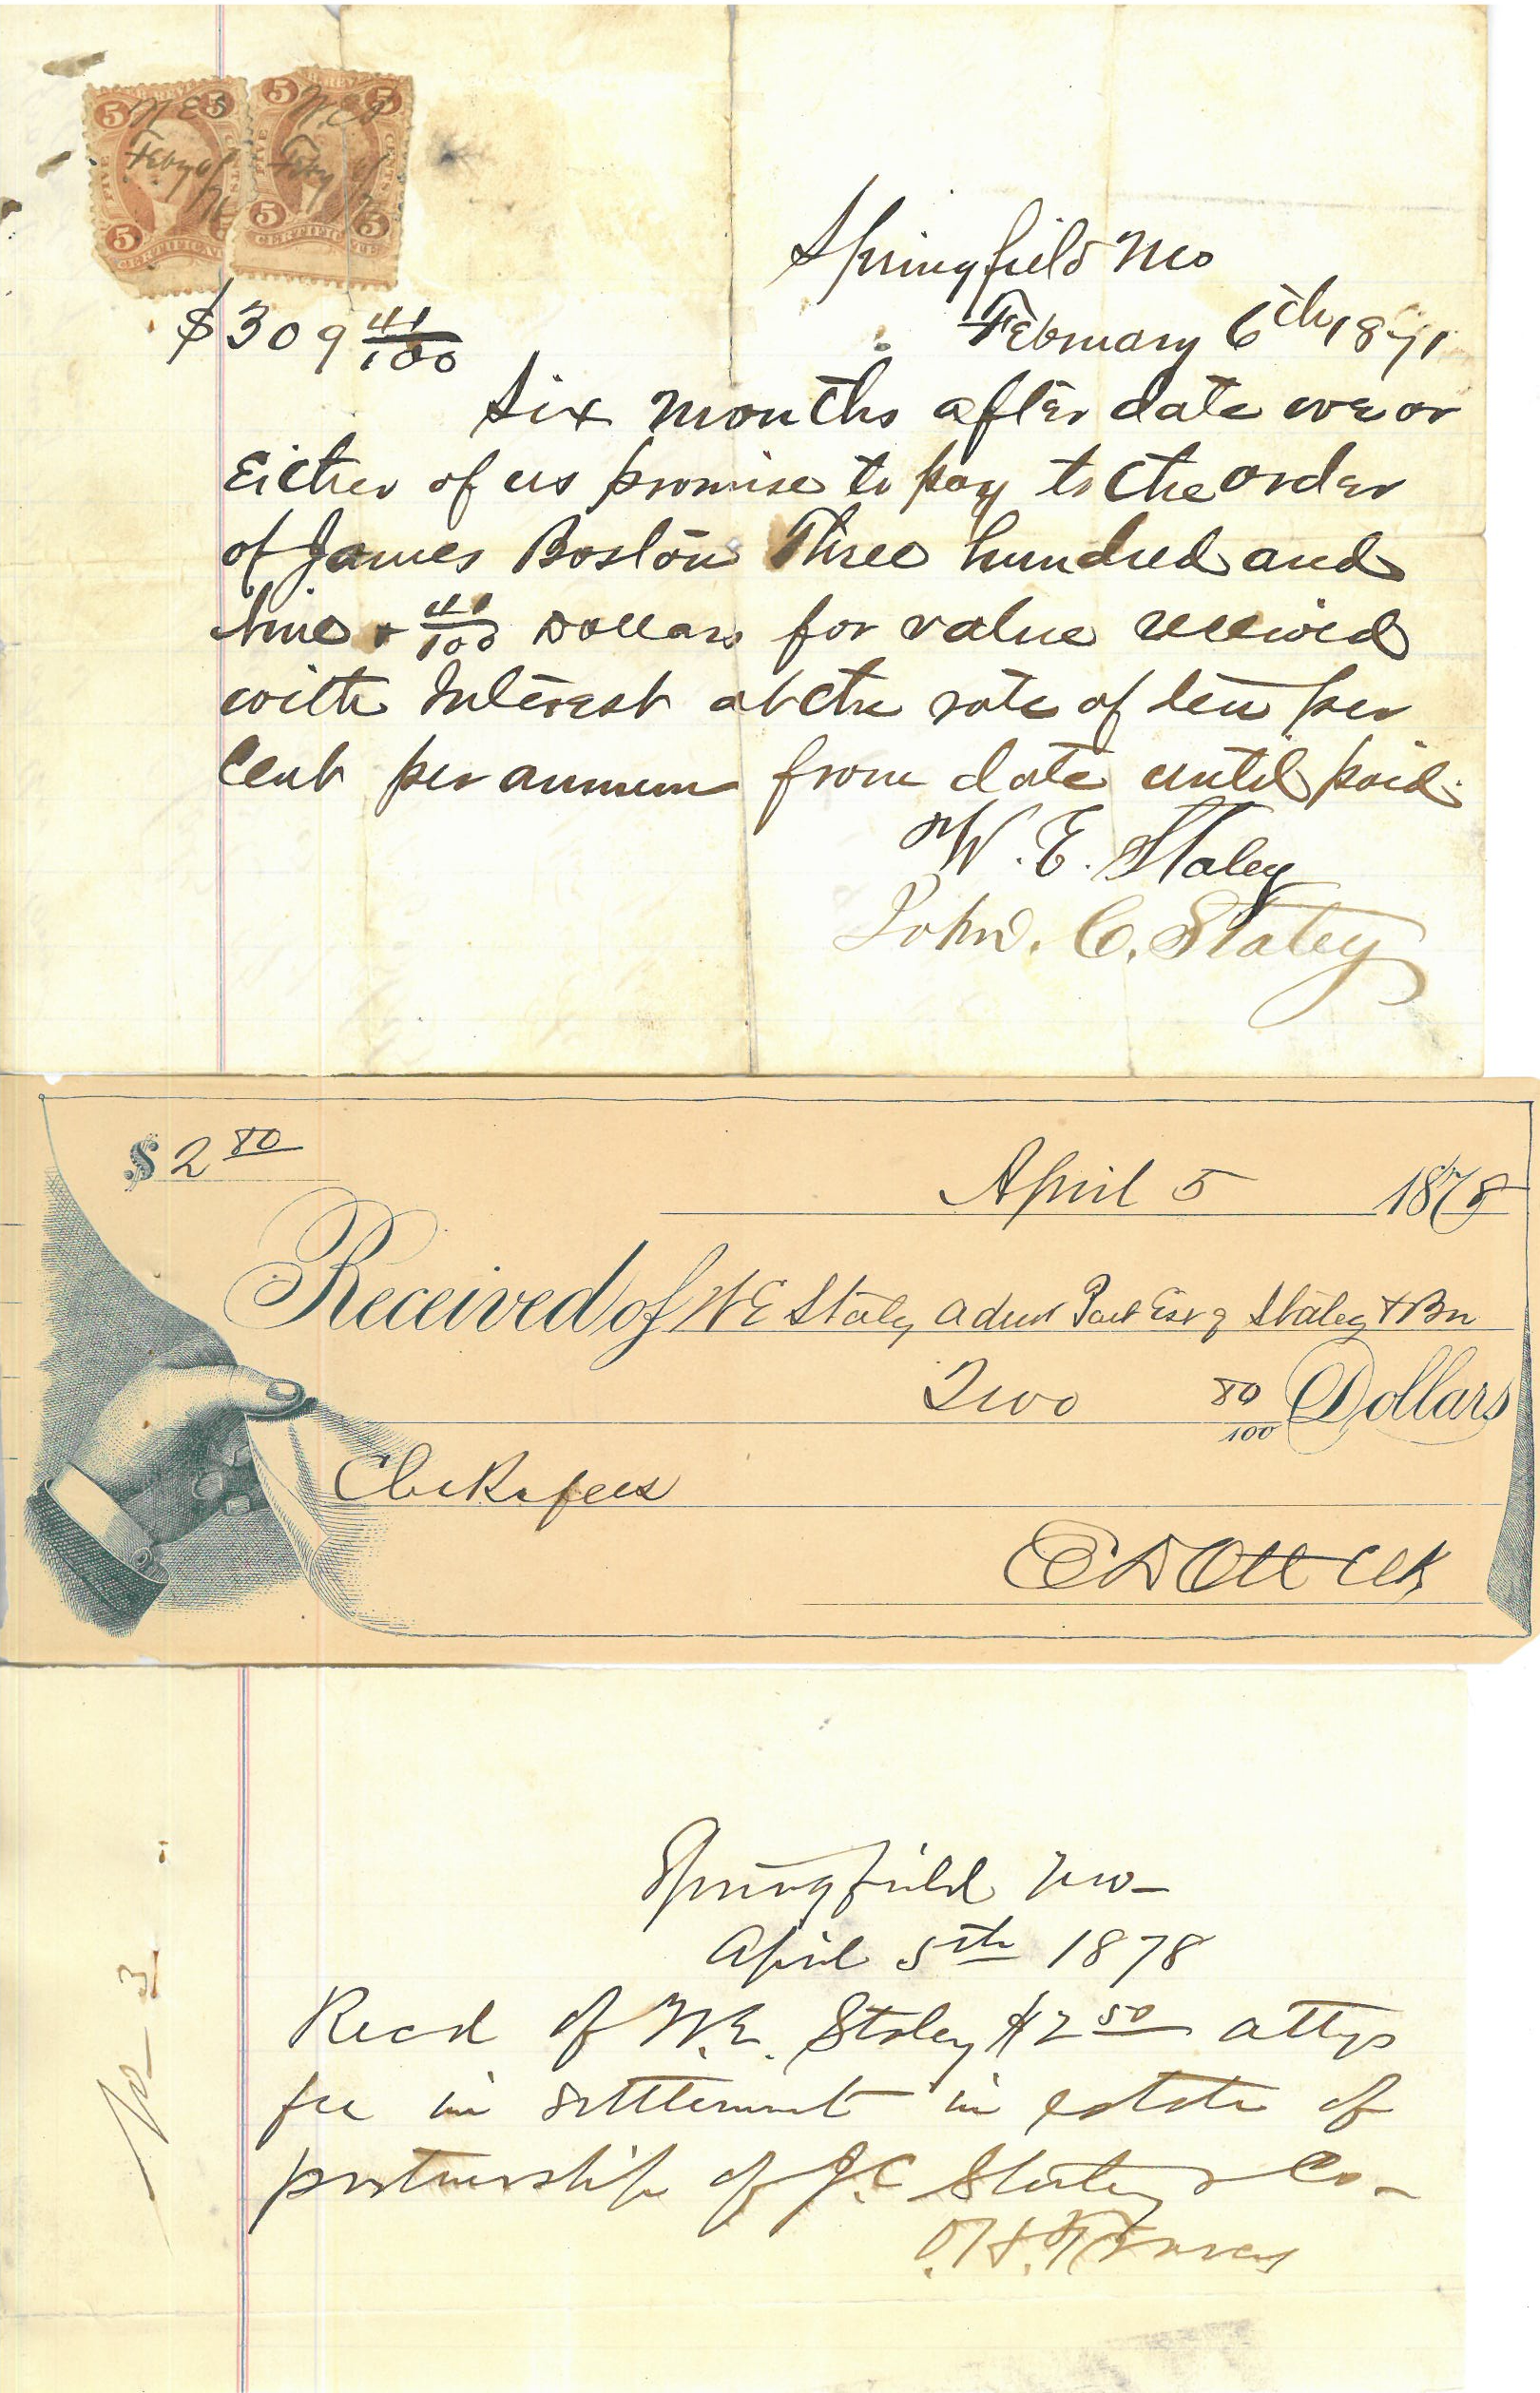 5 5 5 5
W E S W.E.S
Feby 6 Feby 6
71 71
FIVE CENTS FIVE CENTS
5 5 5
CERTIFICATE CERTIFICATE
Springfield Mo
$309 41/100 February 6th 1871
Six months after date we or
Either of us promise to pay to the order
of James Boston Three hundred and
Nine & 41/100 Dollars for value received
with Interest at the rate of ten per
Cent per annum from date until paid.
W. E. Staley
John. C. Staley
$2 80
April 5 1878
Received of W E Staley Admr Part Est of Staley & Bro
Two 80/100 Dollars
Clerks fees
E D Ott Clk
Springfield Mo—
April 5th 1878
Recd of W. E. Staley $2 50 attys
fee in settlement in estate of
partnership of J. C. Staley & Co—
O. H. Travers
No 3